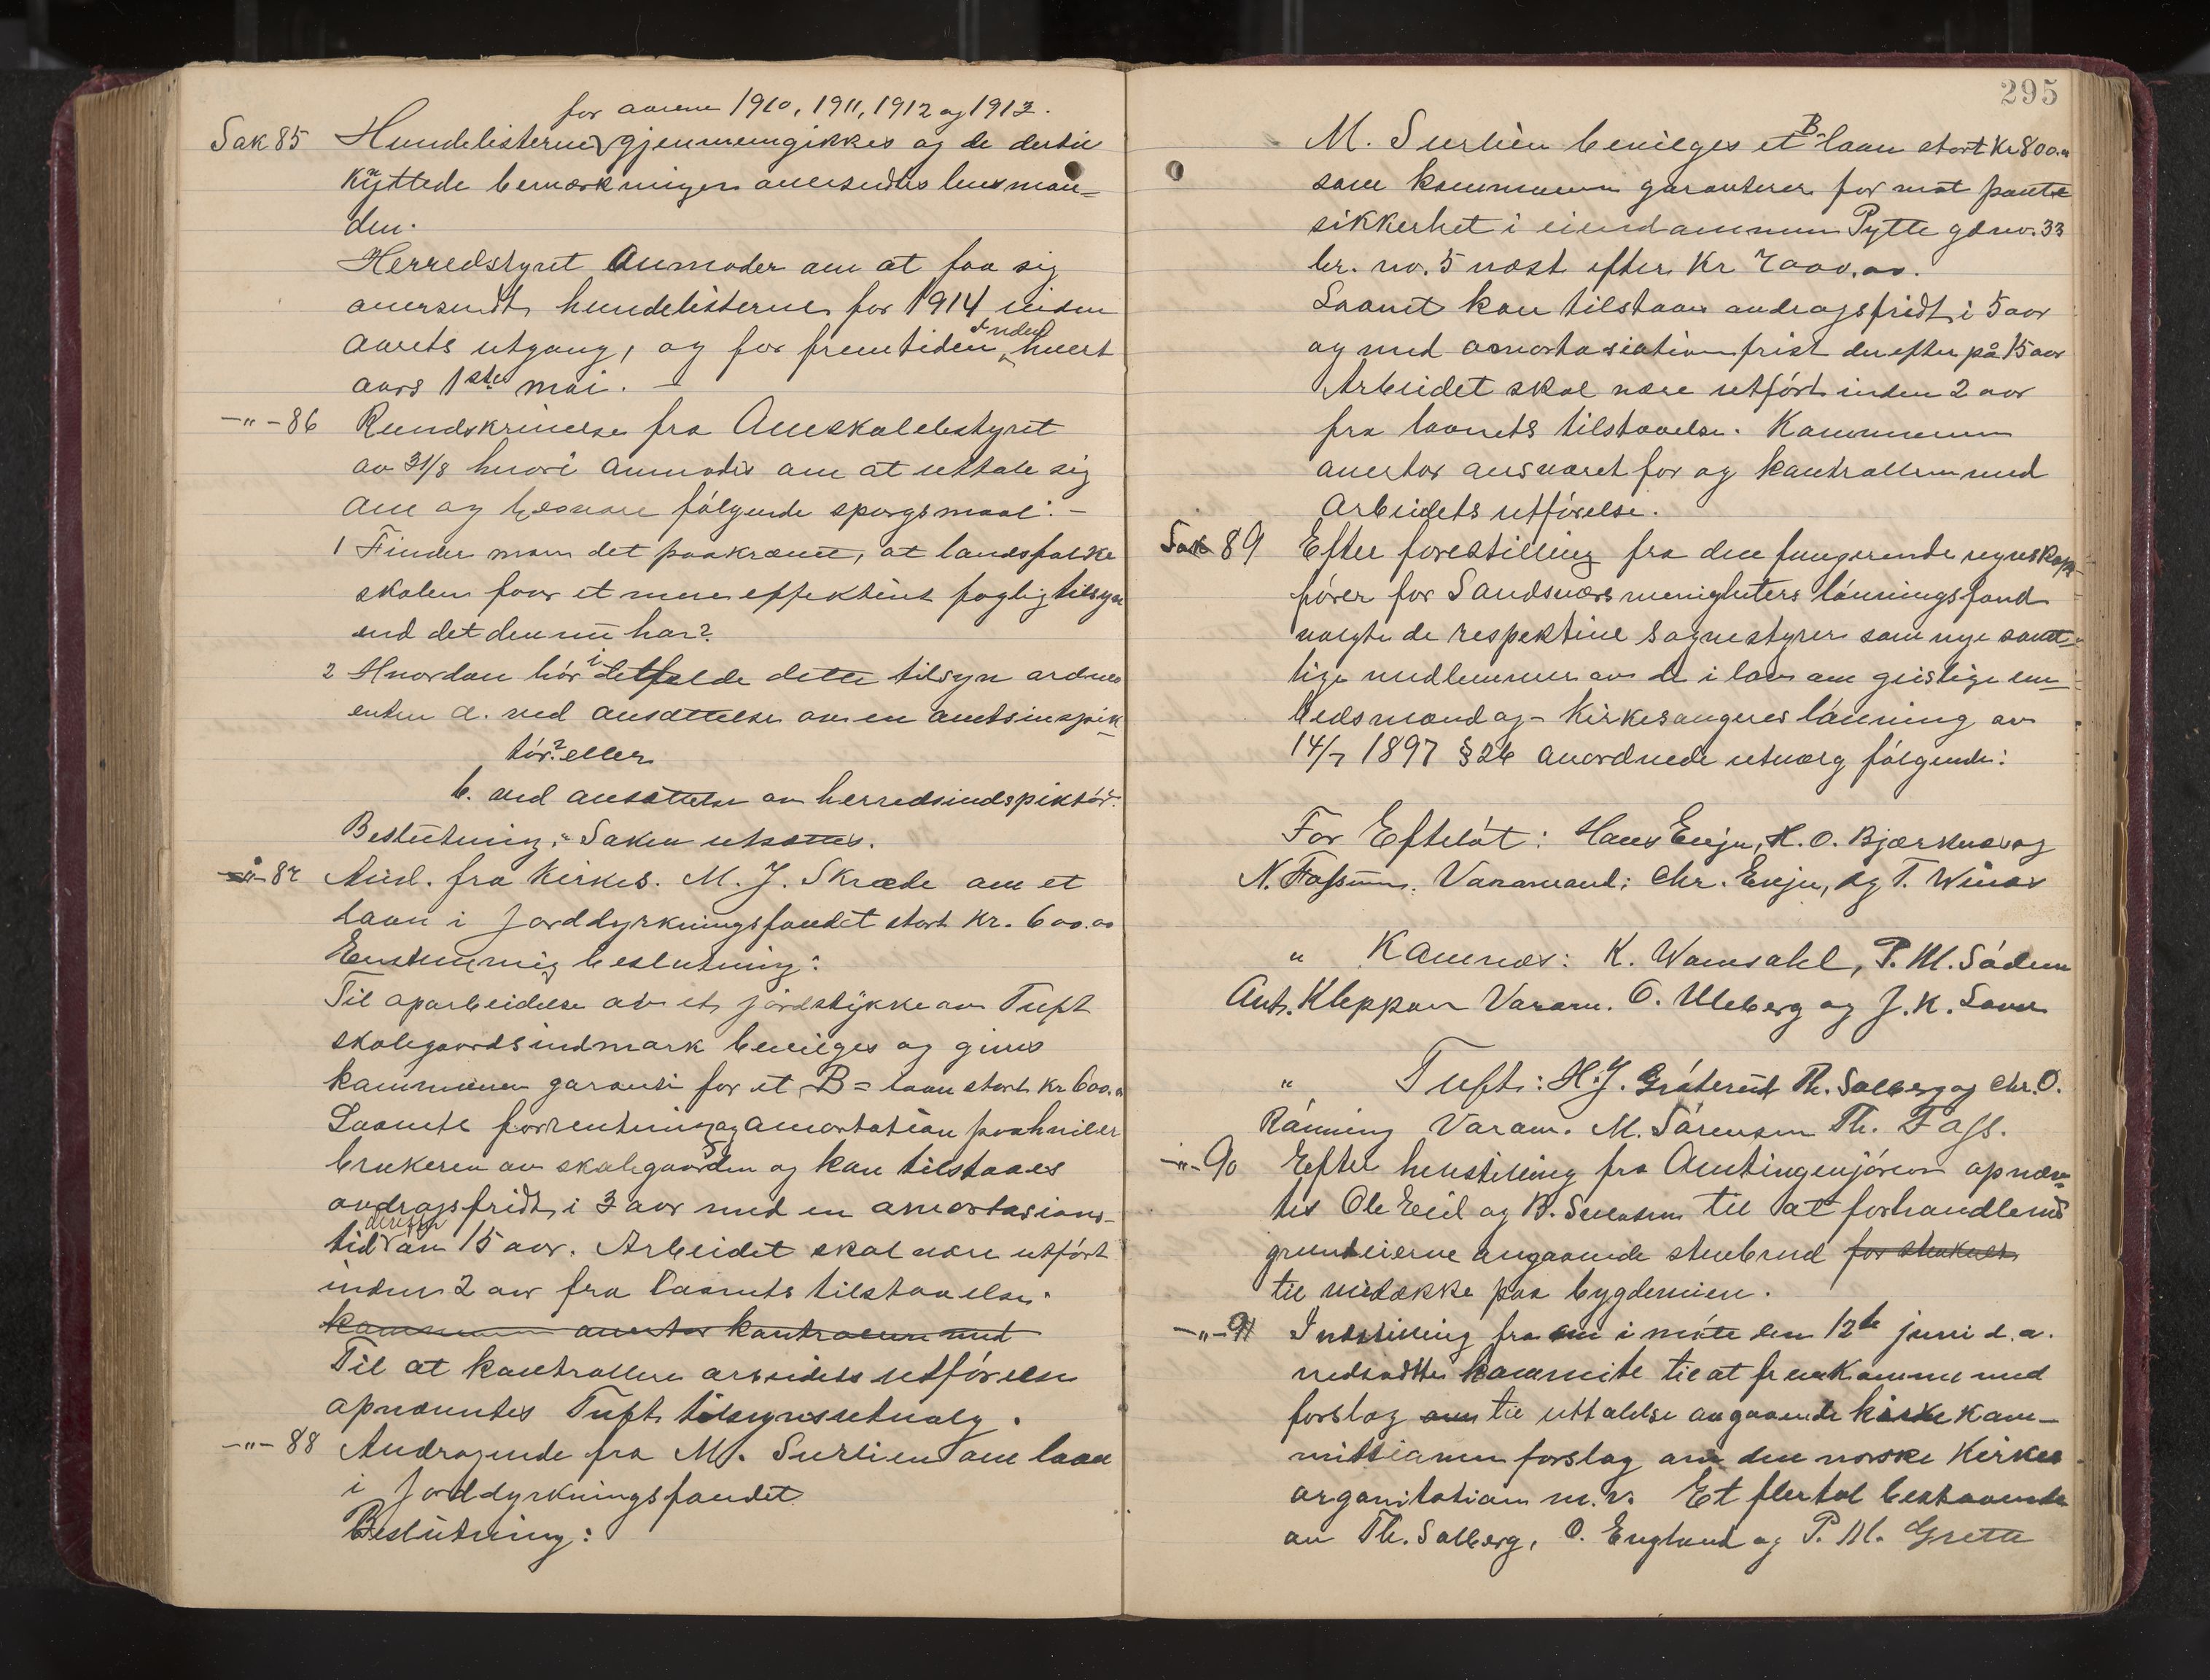 for aarene 1910, 1911, 1912 og 1913.
Sak 85 Hundelisterne gjennemgikkes og de dertil
knyttede bemærkninger oversendtes lensman-
den.
Herredstyret anmoder om at faa sig
oversendt hundelisterne for 1914 inden
aarets utgang, og for fremtiden inden hvert
aars 1ste mai. —
-"- 86 Rundskrivelse fra Amtskolestyret
av 31/8 hvori anmodes om at uttale sig
om og besvare følgende spørgsmaal: -
1 Finder man det paakrævet, at landsfolke
skolen faar et mere effektivt faglig tilsyn
end det den nu har?
2 Hvordan bør i det felde dette tilsyn ordnes
enten a. ved ansættelse av en amtsinspek
tør? eller
b. ved ansættelse av herredsindspektør.
Beslutning: Saken utsættes.
-"- 87 And. fra Kirkes. M. J. Skrede om et
laan i Jorddyrkningsfondet stort Kr. 600.00
Enstemmig beslutning:
Til oparbeidelse av et jordstykke av Tuft
skolegaards indmark bevilges og gives
kommunen garanti for et B= laan stort kr 600.00
Laanets forrentning og amortation paahviler
brukeren av skolegaarden og kan tilstaaes
avdragsfridt i 3 aar med en amortasions-
tid derefter av 15 aar. Arbeidet skal være utført
inden 2 aar fra laanets tilstaaelse.
kommunen overtar kontrollen med
Til at kontrollere arbeidets utførelse
opnævntes Tuft tilsynsutvalg.
-"- 88 Andragende fra M. Surlien om laan
i Jorddyrkningsfondet
Beslutning:
295
M. Surlien bevilges et B- laan stort Kr 800.00
som kommunen garanterer for mot pante
sikkerhet i eiendommen Pytte gdno. 33
br. no. 5 næst efter Kr 7000.00.
Laanet kan tilstaaes avdragsfridt i 5 aar
og med amortasiationsfrist derefter på 15 aar
Arbeidet skal være utført inden 2 aar
fra laanets tilstaaelse. Kommunen
overtar ansvaret for og kontrollen med
Arbeidets utførelse.
Sak 89 Efter forestilling fra den fungerende regnskaps-
fører for Sandsværs menigheters lønningsfond
valgte de respektive sognestyrer som nye samt-
lige medlemmer av de i lov om geistlige em-
bedsmænd og - Kirkesangeres lønning av
14/7 1897 § 26 anordnede utvalg følgende:
For Efteløt: Hans Enju, H. O. Bjærknes og
N. Fossum. Varamænd: Chr. Enju, og T. Winor
" Komnæs: K. Wamsahl, P. M. Sødem
Ant. Kleppan Varam. O. Uleberg og J. K. Lavu
" Tuft: H. J. Gråterud Th. Solberg og Chr. O.
Rønning Varam. M. Sørensen Th. Foss.
-"- 90 Efter henstilling fra Amtingeniøren opnævn-
tes Ole Eiel og B. Svendsen til at forhandle med
grundeierne angaaende stenbrud for stenknus
til veidække paa bygdeveien.
-"- 91 Indstilling fra en i møte den 12te juni d. a.
nedsatte kommite til at fremkomme med
forslag om til uttalelse angaaende kirke kom-
missionens forslag om den norske Kirkes
organisation m.v. Et flertal bestaaende
av Th. Solberg, O. England og P. M. Grette